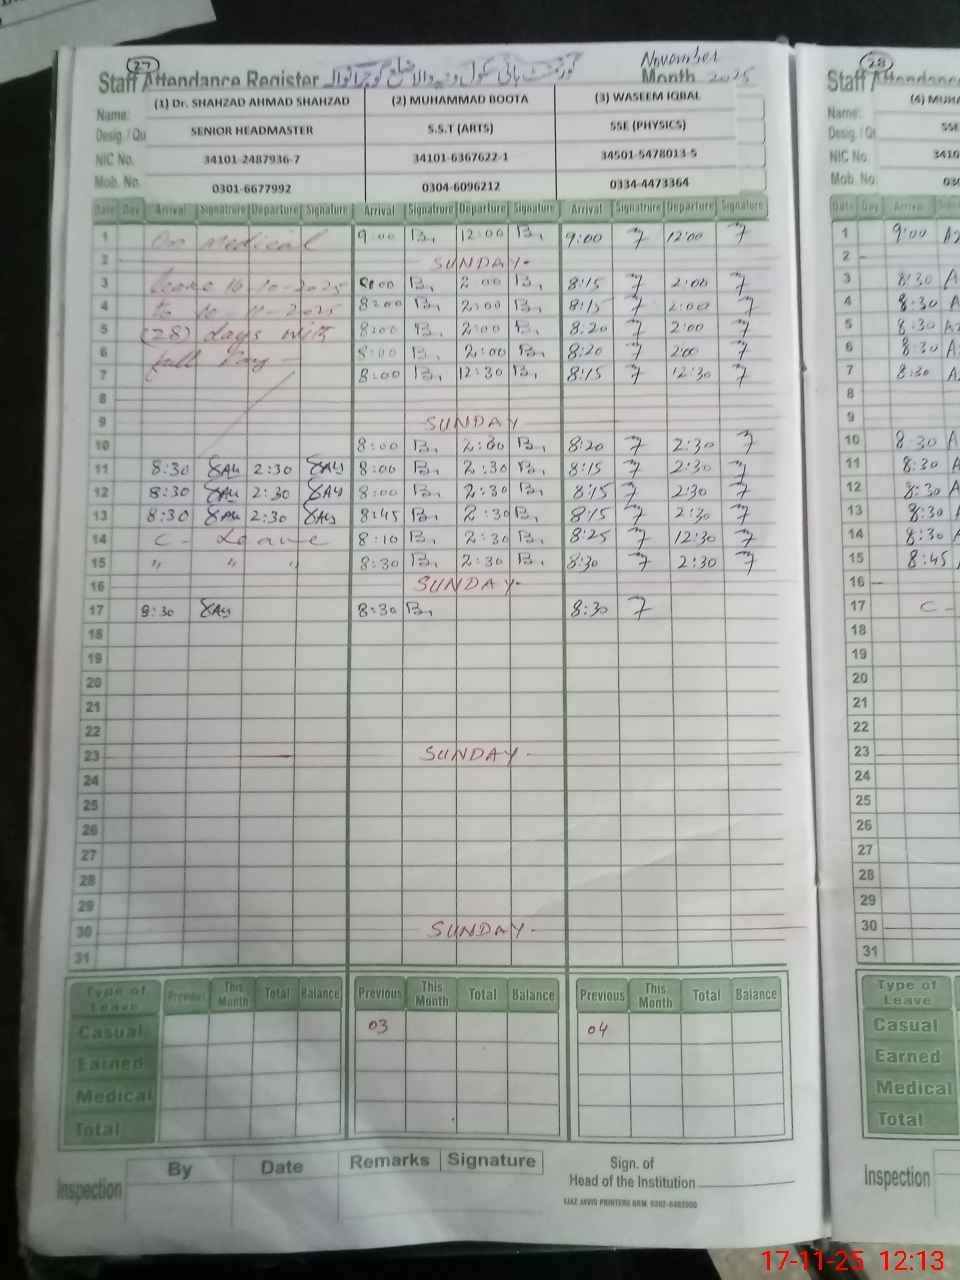 27
28
Staff Attendance Register گورنمنٹ ہائی سکول ضلع گوجرانوالہ November
Month 2025
Staff Attendance
Name: (1) Dr. SHAHZAD AHMAD SHAHZAD (2) MUHAMMAD BOOTA (3) WASEEM IQBAL
Desig. / Qu SENIOR HEADMASTER S.S.T (ARTS) SSE (PHYSICS)
NIC No. 34101-2487936-7 34101-6367622-1 34501-5478013-5
Mob. No. 0301-6677992 0304-6096212 0334-4473364
Name: (4)
Desig. / Qu SSE
NIC No. 3410
Mob. No.
Date Day Arrival Signature Departure Signature Arrival Signatrure Departure Signature Arrival Signatrure Departure Signature
1 On Medical 9:00 B, 12:00 B, 9:00 7 12:00 7
2 SUNDAY-
3 leave 16-10-2025 8:00 B, 2:00 B, 8:15 7 2:00 7
4 to 10-11-2025 8:00 B, 2:00 B, 8:15 7 2:00 7
5 (28) days with 8:00 B, 2:00 B, 8:20 7 2:00 7
6 full Pay- 8:00 B, 2:00 B, 8:20 7 2:00 7
7 8:00 B, 12:30 B, 8:15 7 12:30 7
8
9 SUNDAY
10 8:00 B, 2:00 B, 8:20 7 2:30 7
11 8:30 SAS 2:30 SAS 8:00 B, 2:30 B, 8:15 7 2:30 7
12 8:30 SAS 2:30 SAS 8:00 B, 2:30 B, 8:15 7 2:30 7
13 8:30 SAS 2:30 SAS 8:45 B, 2:30 B, 8:15 7 2:30 7
14 C- Leave 8:10 B, 2:30 B, 8:25 7 12:30 7
15 " " " 8:30 B, 2:30 B, 8:30 7 2:30 7
16 SUNDAY-
17 8:30 SAS 8:30 B, 8:30 7
18
19
20
21
22
23 SUNDAY-
24
25
26
27
28
29
30 SUNDAY-
31
Date Day Arrival
1 9:00
2
3 8:30
4 8:30
5 8:30
6 8:30
7 8:30
8
9
10 8:30
11 8:30
12 8:30
13 8:30
14 8:30
15 8:45
16
17 C-
18
19
20
21
22
23
24
25
26
27
28
29
30
31
Type of Leave Previous This Month Total Balance Previous This Month Total Balance Previous This Month Total Balance
Casual 03 04
Earned
Medical
Total
Type of Leave
Casual
Earned
Medical
Total
Inspection By Date Remarks Signature
Sign. of
Head of the Institution
IJAZ JAVID PRINTERS GRW.
Inspection
17-11-25 12:13